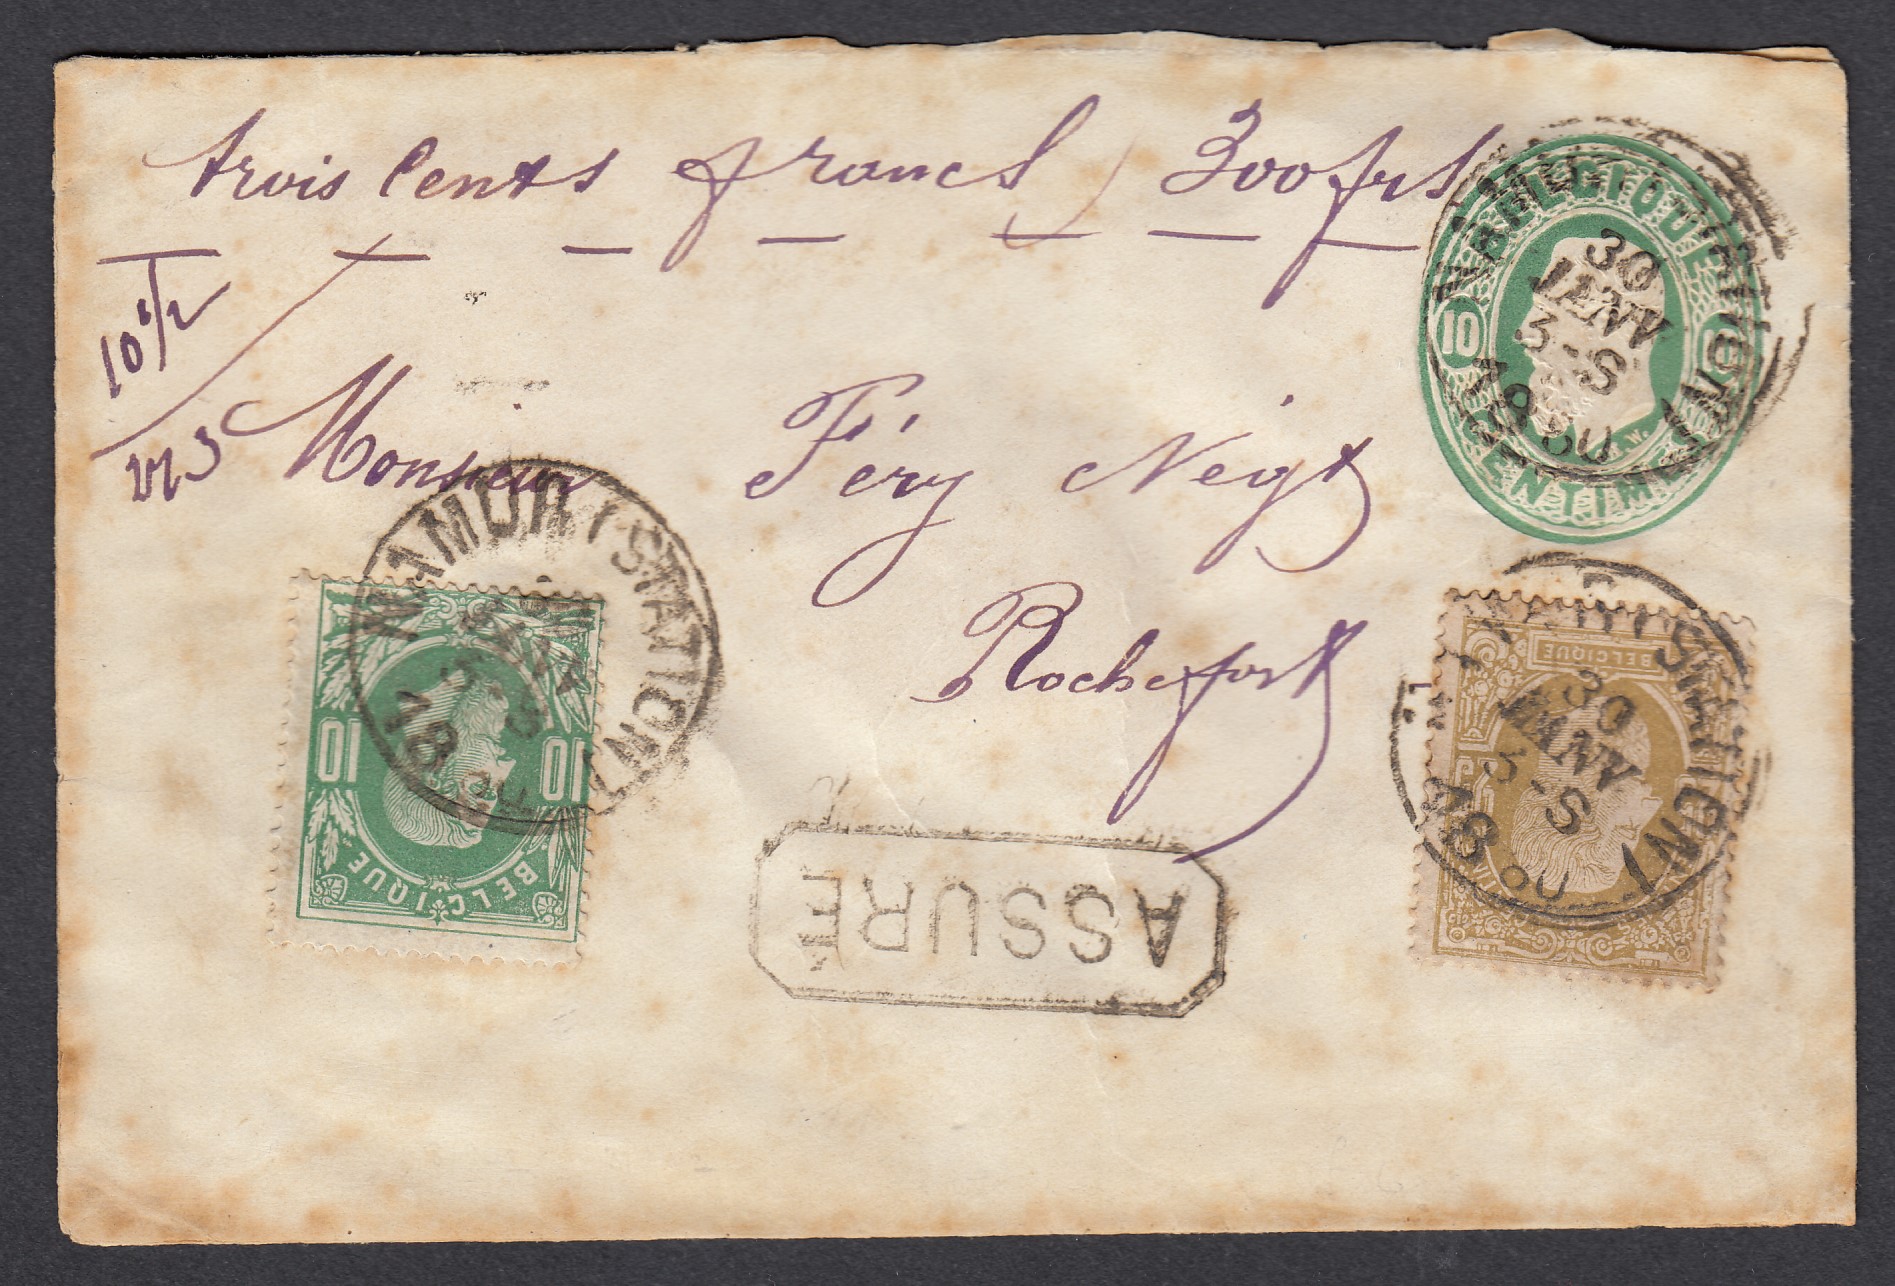 trois Cents francs 300 frs
10 1/2
Monsieur Féry Negt
Rochefort
BELGIQUE
10
CENTIMES
30
JANV
3-S
1880
NAMUR (STATION)
3-S
18
10 10
BELGIQUE
BELGIQUE
NAMUR (STATION)
30
JANV
3-S
1880
ASSURÉ